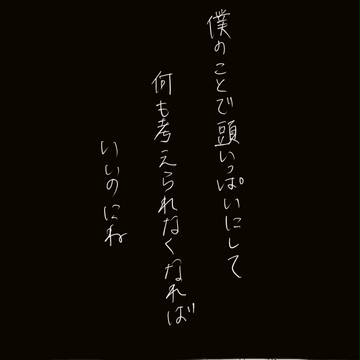 僕のことで頭いっぱいにして
何も考えられなくなれば
いいのにね